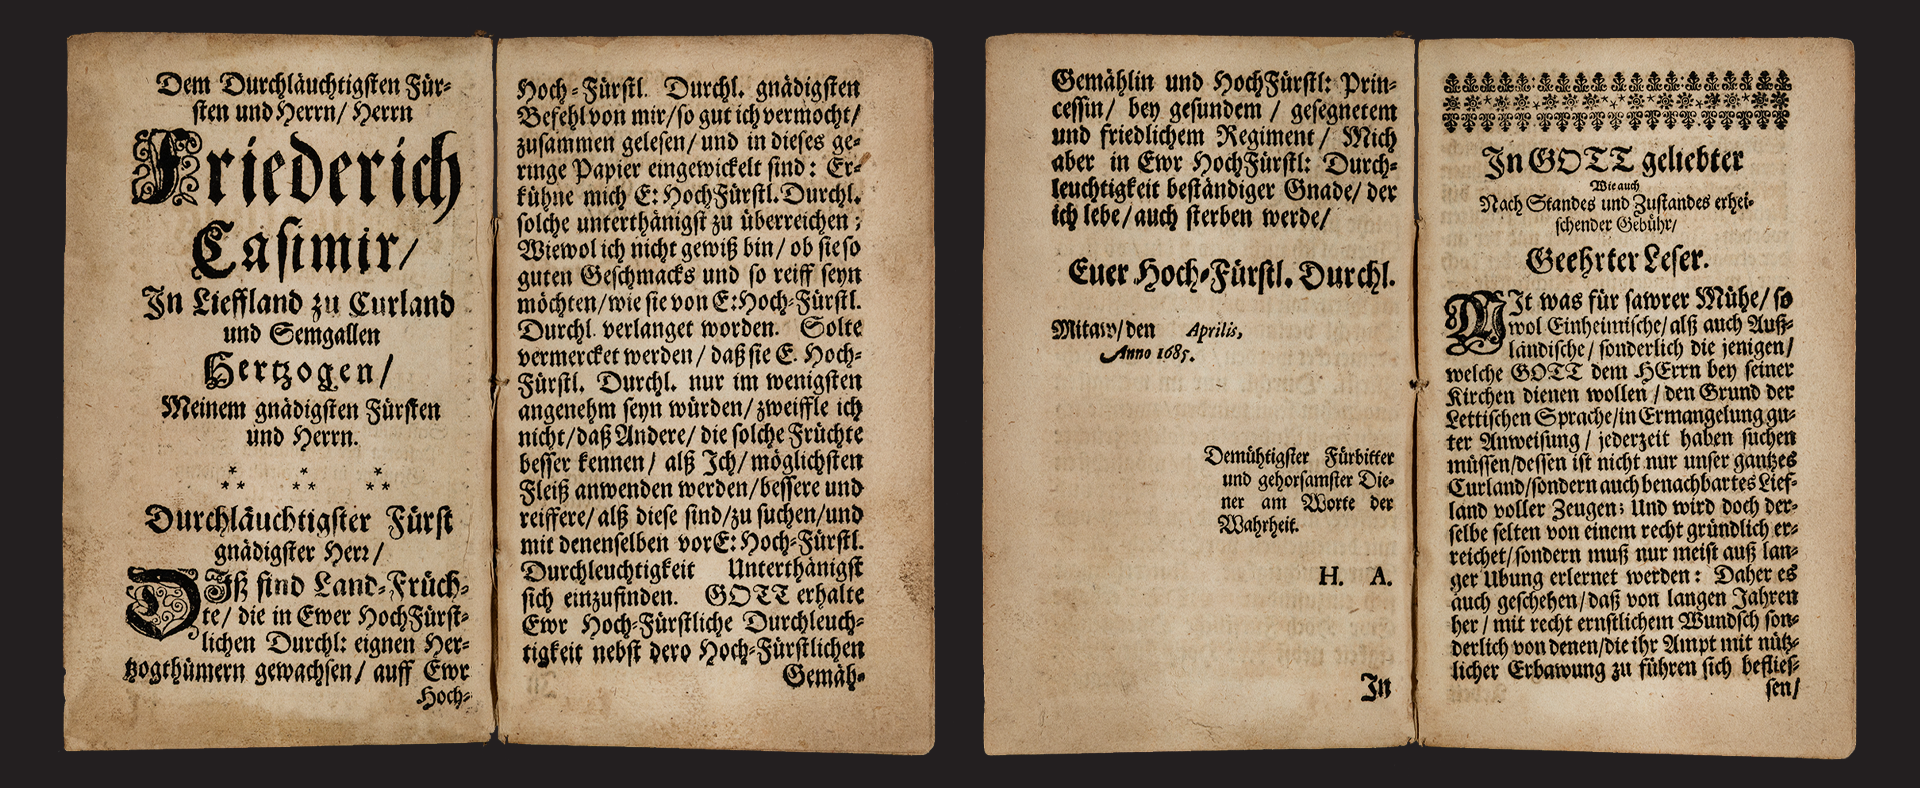 Dem Durchläuchtigsten Für-
sten und Herrn/ Herrn
Friederich
Casimir/
In Lieffland zu Curland
und Semgallen
Hertzogen/
Meinem gnädigsten Fürsten
und Herrn.
* * *
** ** **
Durchläuchtigster Fürst
gnädigster Herr/
DIß sind Land-Früch-
te/ die in Ewer HochFürst-
lichen Durchl: eignen Her-
tzogthümern gewachsen/ auff Ewr
Hoch-
Hoch-Fürstl. Durchl. gnädigsten
Befehl von mir/so gut ich vermocht/
zusammen gelesen/ und in dieses ge-
ringe Papier eingewickelt sind: Er-
kühne mich E: HochFürstl. Durchl.
solche unterthänigst zu überreichen;
Wiewol ich nicht gewiß bin/ ob sie so
guten Geschmacks und so reiff seyn
möchten/wie sie von E: Hoch-Fürstl.
Durchl. verlanget worden. Solte
vermercket werden/ daß sie E. Hoch-
Fürstl. Durchl. nur im wenigsten
angenehm seyn würden/ zweiffle ich
nicht/daß Andere/ die solche Früchte
besser kennen/ alß Ich/ möglichsten
Fleiß anwenden werden/bessere und
reiffere/ alß diese sind/zu suchen/und
mit denenselben vor E: Hoch-Fürstl.
Durchleuchtigkeit Unterthänigst
sich einzufinden. GOTT erhalte
Ewr Hoch-Fürstliche Durchleuch-
tigkeit nebst dero Hoch-Fürstlichen
Gemäh-
Gemählin und HochFürstl: Prin-
cessin/ bey gesundem / gesegnetem
und friedlichem Regiment/ Mich
aber in Ewr HochFürstl: Durch-
leuchtigkeit beständiger Gnade/ der
ich lebe/ auch sterben werde/
Euer Hoch-Fürstl. Durchl.
Mitaw/den Aprilis,
Anno 1685.
Demühtigster Fürbitter
und gehorsamster Die-
ner am Worte der
Wahrheit.
H. A.
In
In GOTT geliebter
Wie auch
Nach Standes und Zustandes erhei-
schender Gebühr/
Geehrter Leser.
MIt was für sawrer Mühe/ so
wol Einheimische/ alß auch Auß-
ländische/ sonderlich die jenigen/
welche GOTT dem HErrn bey seiner
Kirchen dienen wollen / den Grund der
Lettischen Sprache/in Ermangelung gu-
ter Anweisung / jederzeit haben suchen
müssen/dessen ist nicht nur unser gantzes
Curland/sondern auch benachbartes Lief-
land voller Zeugen; Und wird doch der-
selbe selten von einem recht gründlich er-
reichet/sondern muß nur meist auß lan-
ger Ubung erlernet werden: Daher es
auch geschehen/daß von langen Jahren
her/ mit recht ernstlichem Wundsch son-
derlich von denen/die ihr Ampt mit nütz-
licher Erbawung zu führen sich beflies-
sen/